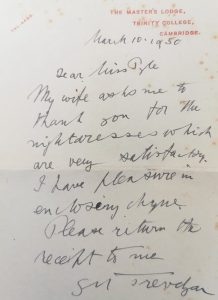 THE MASTER'S LODGE,
TRINITY COLLEGE,
CAMBRIDGE.
March 10. 1950
Dear Miss Pyle
My wife asks me to
thank you for the
nightdresses which
are very satisfactory.
I have pleasure in
enclosing cheque.
Please return the
receipt to me
G M Trevelyan